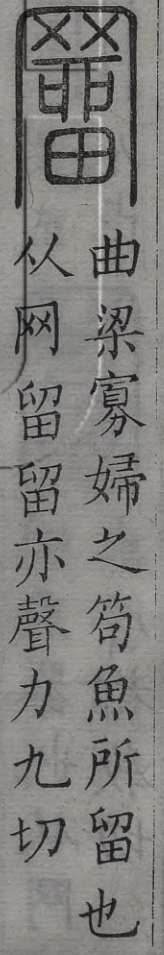 罶
曲梁寡婦之笱魚所留也
从网留留亦聲力九切